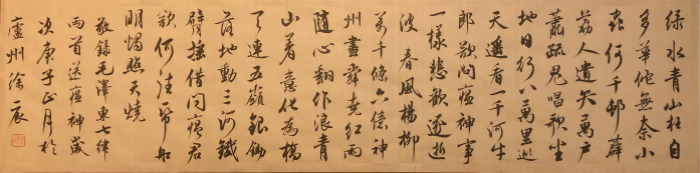 綠水青山枉自
多華佗無奈小
蟲何千邨薜
荔人遺矢萬戶
蕭疏鬼唱歌坐
地日行八萬里巡
天遥看一千河牛
郎欲問瘟神事
一樣悲歡逐逝
波 春風楊柳
萬千條六億神
州盡舜堯紅雨
隨心翻作浪青
山着意化為橋
天連五嶺銀鋤
落地動三河鐵
臂搖借問瘟君
欲何往帋船
明燭照天燒
敬錄毛澤東七律
兩首送瘟神歲
次庚子正月於
廬州徐辰